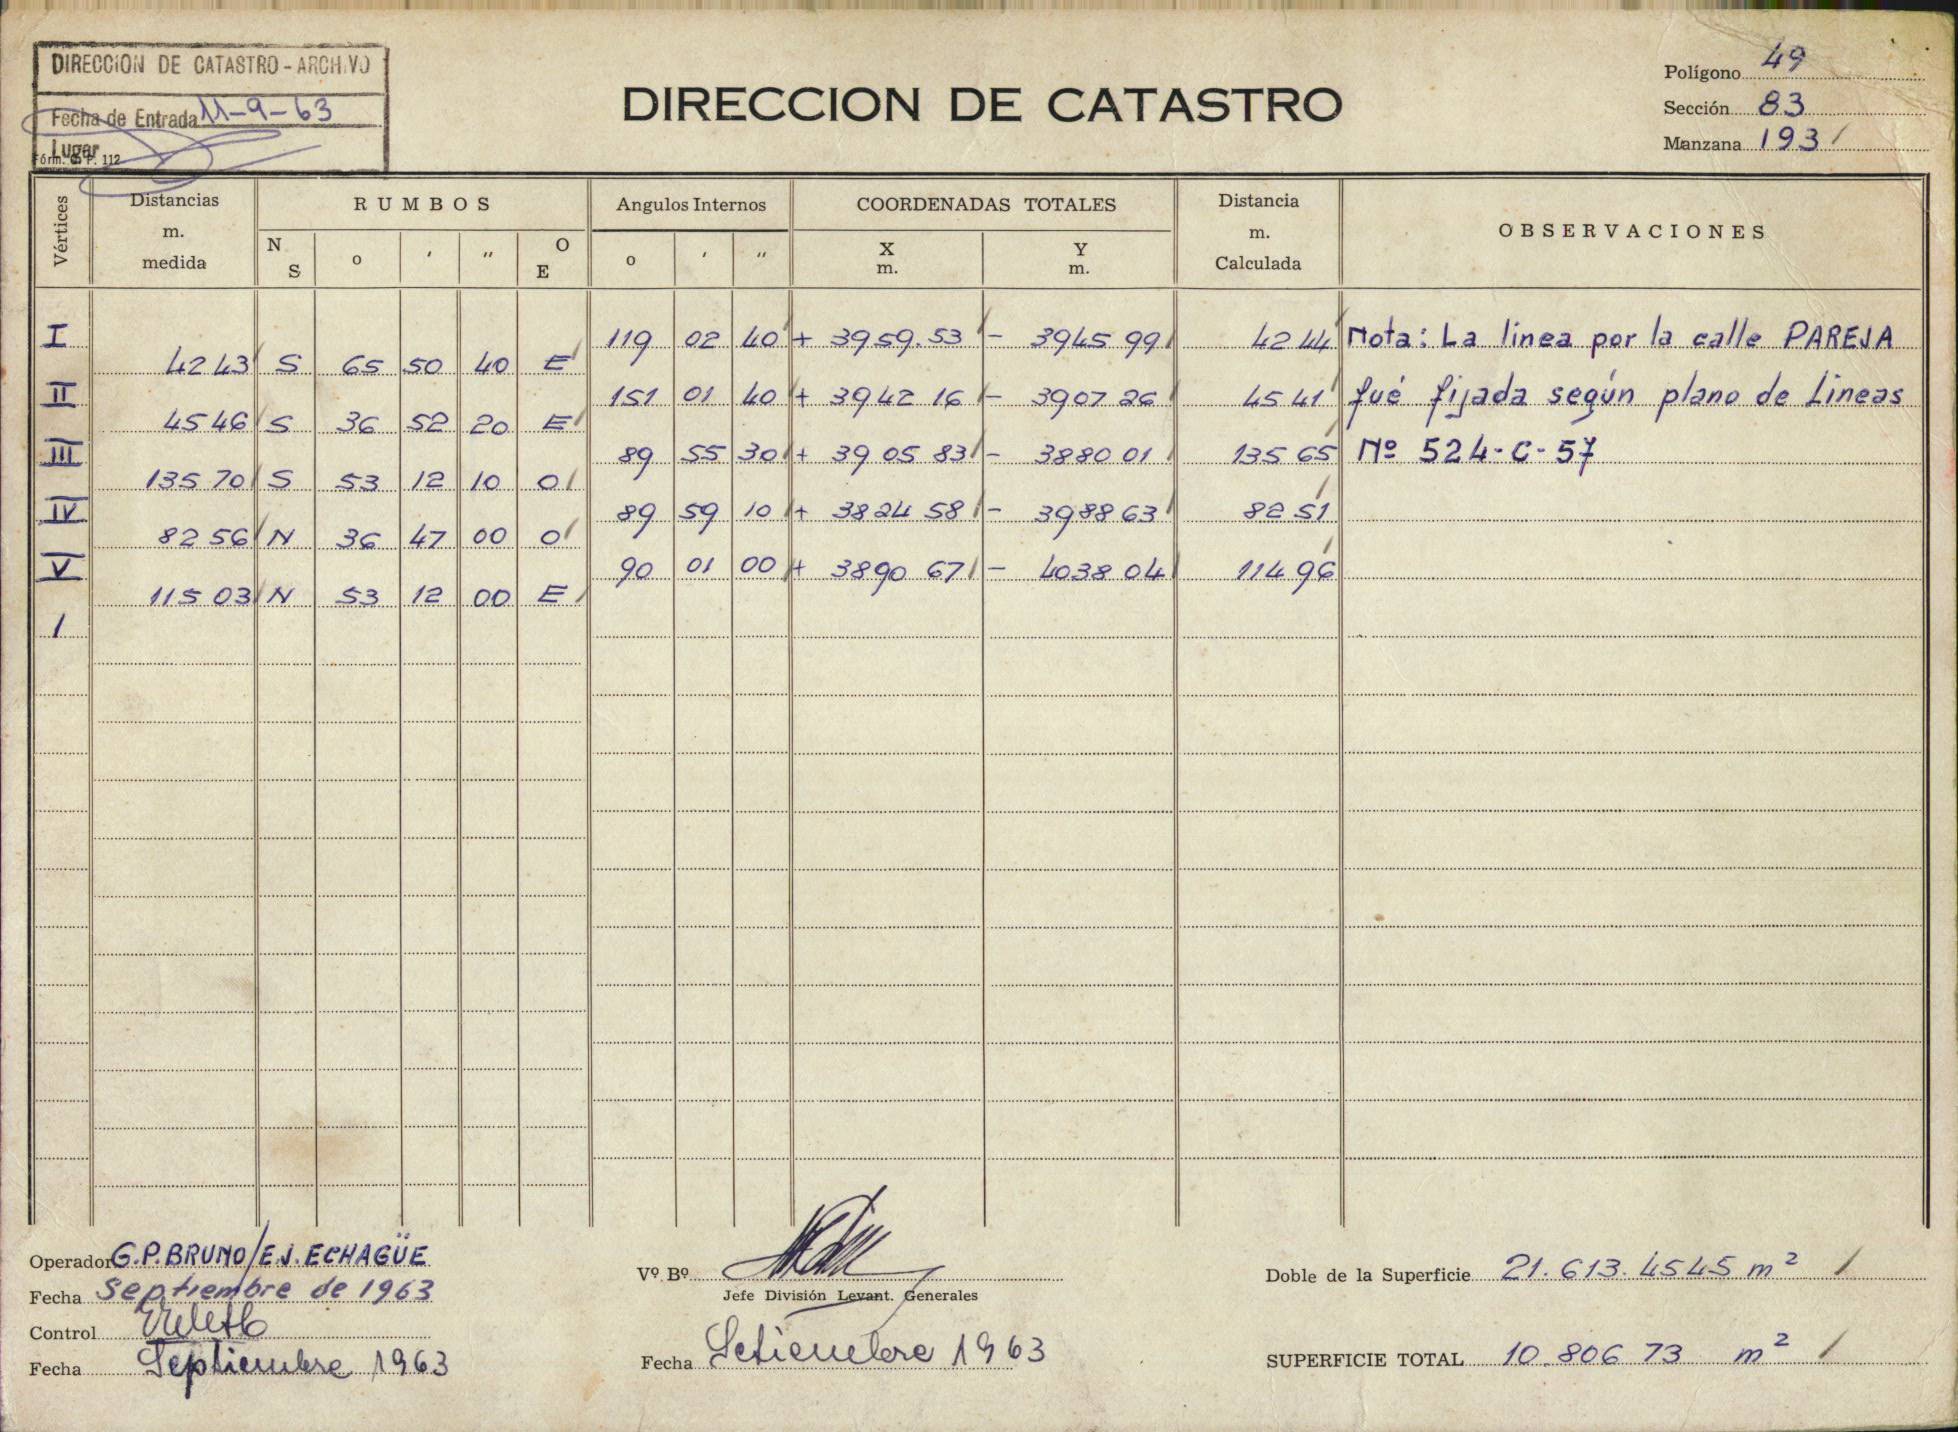 DIRECCION DE CATASTRO - ARCHIVO
Fecha de Entrada 11-9-63
Lugar
Fórm. C. P. 112
DIRECCION DE CATASTRO
Polígono 49
Sección 83
Manzana 193
Vértices
Distancias m. medida
RUMBOS
N S o ' " O E
Angulos Internos
o ' "
COORDENADAS TOTALES
X m. Y m.
Distancia m. Calculada
OBSERVACIONES
I 119 02 40 + 3959.53 - 3945 99 42 44 Nota: La linea por la calle PAREJA
42 43 S 65 50 40 E
II 151 01 40 + 3942 16 - 3907 26 45 41 fué fijada según plano de Lineas
45 46 S 36 52 20 E
III 89 55 30 + 3905 83 - 3880 01 135 65 Nº 524-C-57
135 70 S 53 12 10 O
IV 89 59 10 + 3824 58 - 3988 63 82 51
82 56 N 36 47 00 O
V 90 01 00 + 3890 67 - 4038 04 114 96
115 03 N 53 12 00 E
I
Operador G.P. BRUNO/E.J. ECHAGÜE
Fecha Septiembre de 1963
Control
Fecha Septiembre 1963
Vº Bº
Jefe División Levant. Generales
Fecha Setiembre 1963
Doble de la Superficie 21.613.4545 m²
SUPERFICIE TOTAL 10.806 73 m²